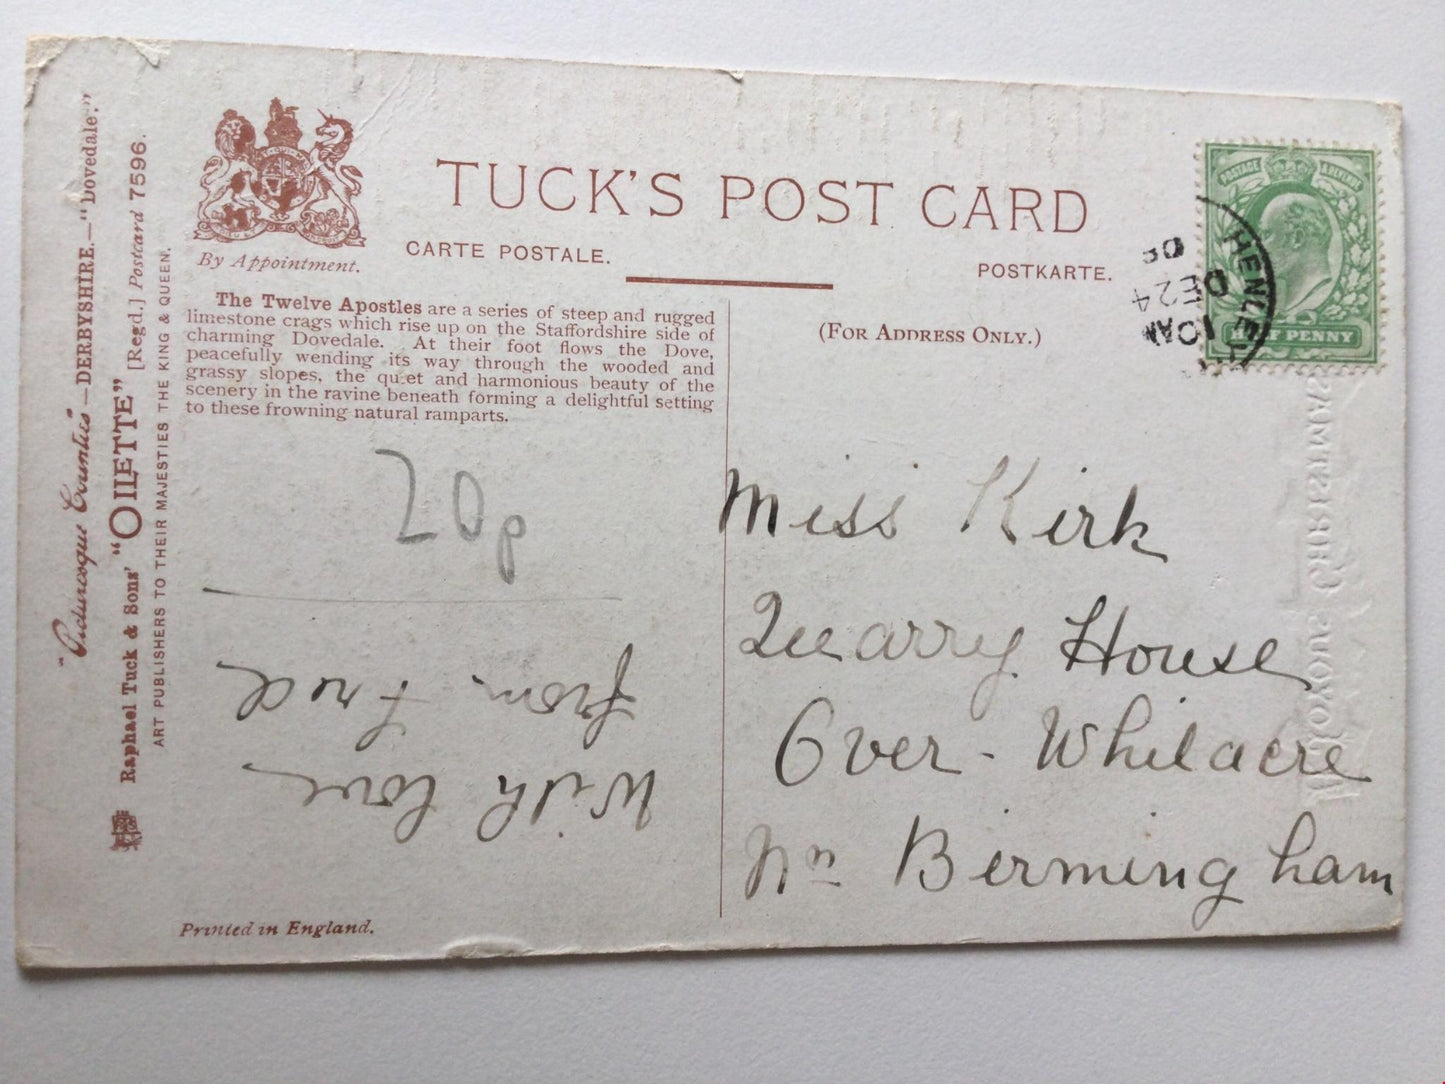 "Picturesque Counties"—DERBYSHIRE.—"Dovedale."
Raphael Tuck & Sons' "OILETTE" [Regd.] Postcard 7596.
ART PUBLISHERS TO THEIR MAJESTIES THE KING & QUEEN.
By Appointment.
TUCK'S POST CARD
CARTE POSTALE.
POSTKARTE.
The Twelve Apostles are a series of steep and rugged
limestone crags which rise up on the Staffordshire side of
charming Dovedale. At their foot flows the Dove,
peacefully wending its way through the wooded and
grassy slopes, the quiet and harmonious beauty of the
scenery in the ravine beneath forming a delightful setting
to these frowning natural ramparts.
(FOR ADDRESS ONLY.)
POSTAGE & REVENUE
HALF PENNY
HENLEY
10AM
DE 24
08
20p
With love
from Fred
Miss Kirk
Quarry House
Over-Whitacre
Nr Birmingham
Printed in England.